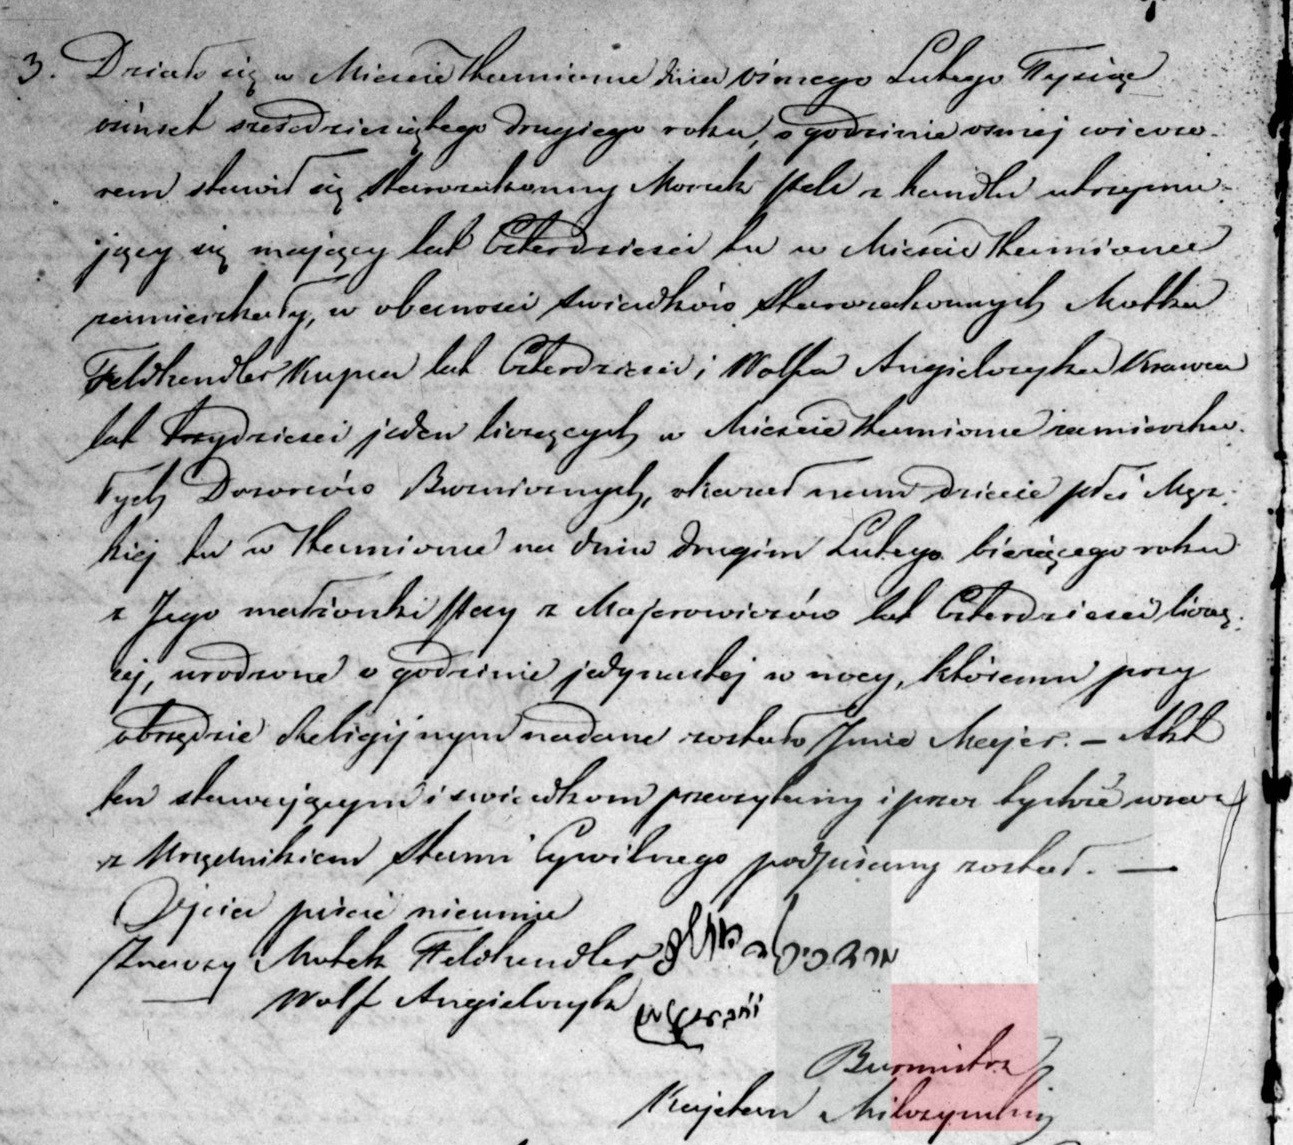 3. Działo się w Mieście Tłumionie dnia ósmego Lutego Tysiąc
ośmset sześćdziesiątego drugiego roku, o godzinie osmej wieczo-
rem stawił się Starozakonny Moszek z handlu utrzymu-
jący się mający lat Czterdzieści tu w Mieście
zamieszkały, w obecności świadków Starozakonnych Motka
Feldhendler Kupca lat Czterdzieści i Wolfa Angielczyka Krawca
lat trzydzieści jeden liczących w Mieście zamieszka-
łych Dozorców Bużnicznych, okazał nam dziecie płci Męz-
kiej tu w na dniu drugim Lutego bieżącego roku
z Jego małżonki z Majerowiczów lat Czterdzieści licząc-
ej, urodzone o godzinie jedynastej w nocy, któremu przy
obrzędzie Religijnym nadane zostało Imie Majer. — Akt
ten stawającym i swiadkom przeczytany i przez tychże wraz
z Urzędnikiem Stanu Cywilnego podpisany został. —
Ojciec pisać nieumie
Znawcy Motek Feldhendler
Wolf Angielczyk
Burmistrz
Kajetan